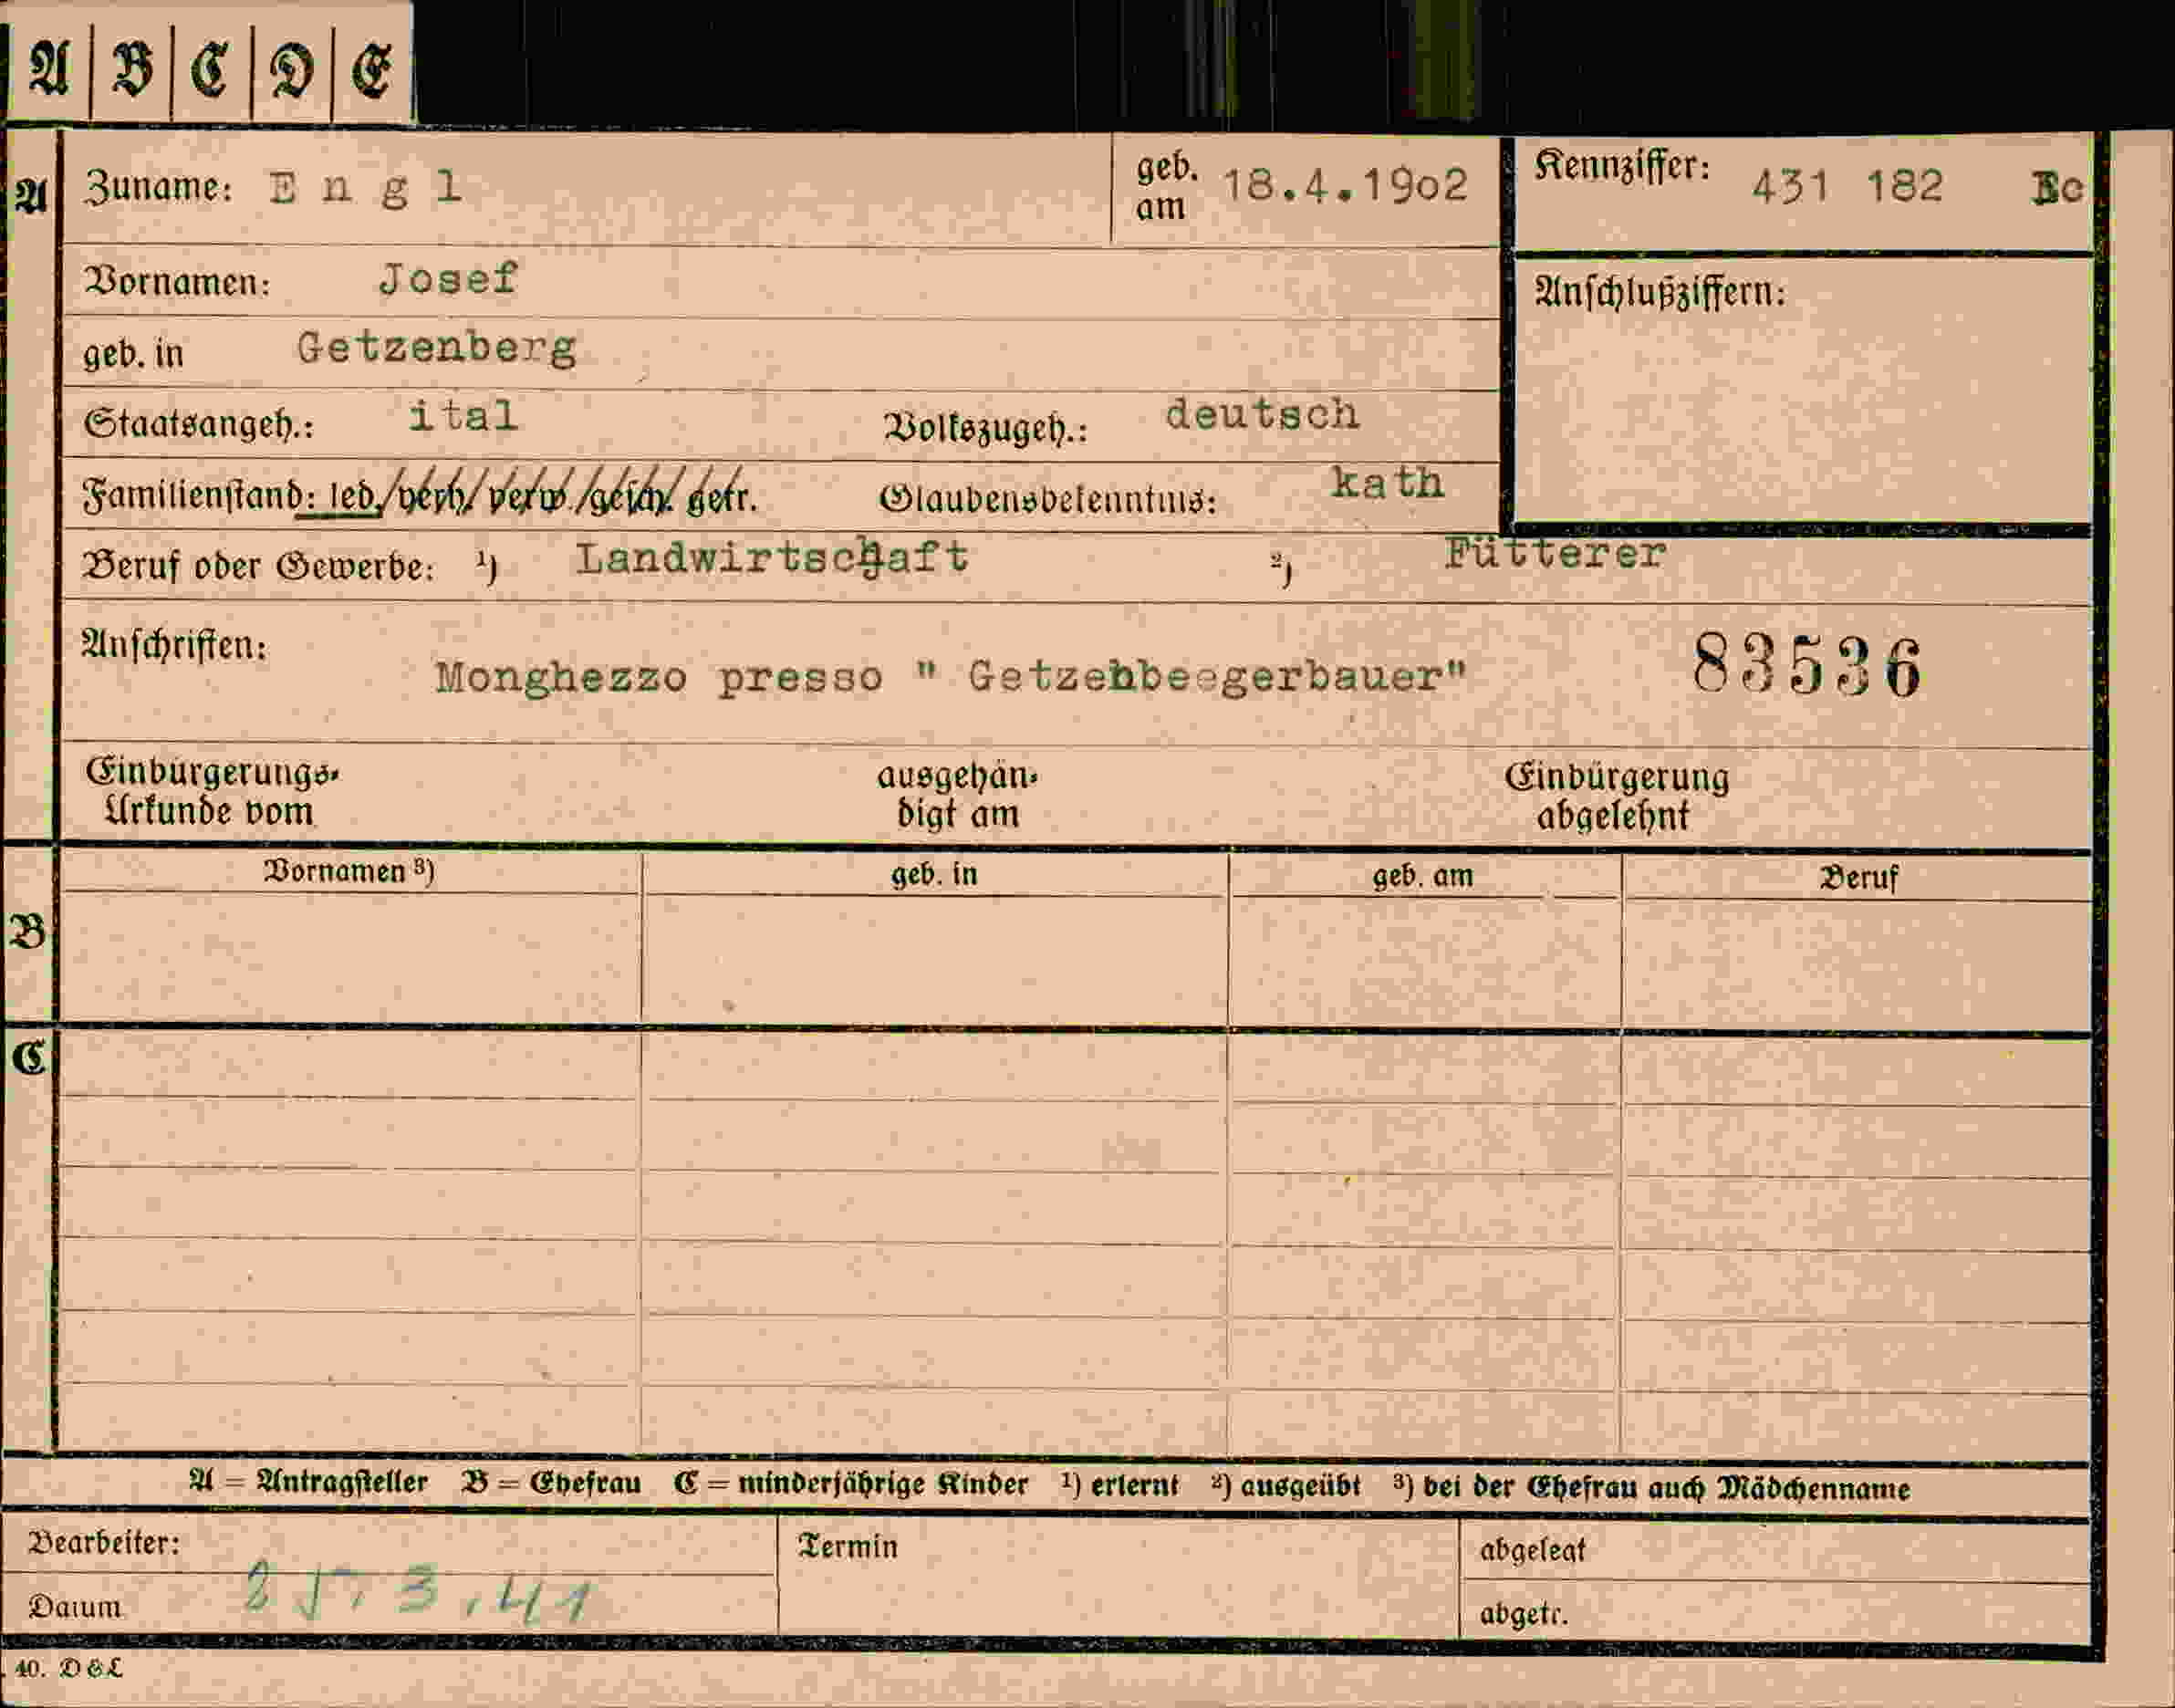 A | B | C | D | E
A Zuname: Engl geb. am 18.4.1902 Kennziffer: 431 182 Bo
Vornamen: Josef Anschlußziffern:
geb. in Getzenberg
Staatsangeh.: ital Volkszugeh.: deutsch
Familienstand: led./verh./verw./gesch. getr. Glaubensbekenntnis: kath
Beruf oder Gewerbe: ¹) Landwirtschaft ²) Fütterer
Anschriften:
Monghezzo presso " Getzenbeegerbauer" 83536
Einbürgerungs- ausgehän- Einbürgerung
Urkunde vom digt am abgelehnt
Vornamen ³) geb. in geb. am Beruf
B
C
A = Antragsteller B = Ehefrau C = minderjährige Kinder ¹) erlernt ²) ausgeübt ³) bei der Ehefrau auch Mädchenname
Bearbeiter: Termin abgelegt
Datum 25.3.41 abgetr.
40. D&L